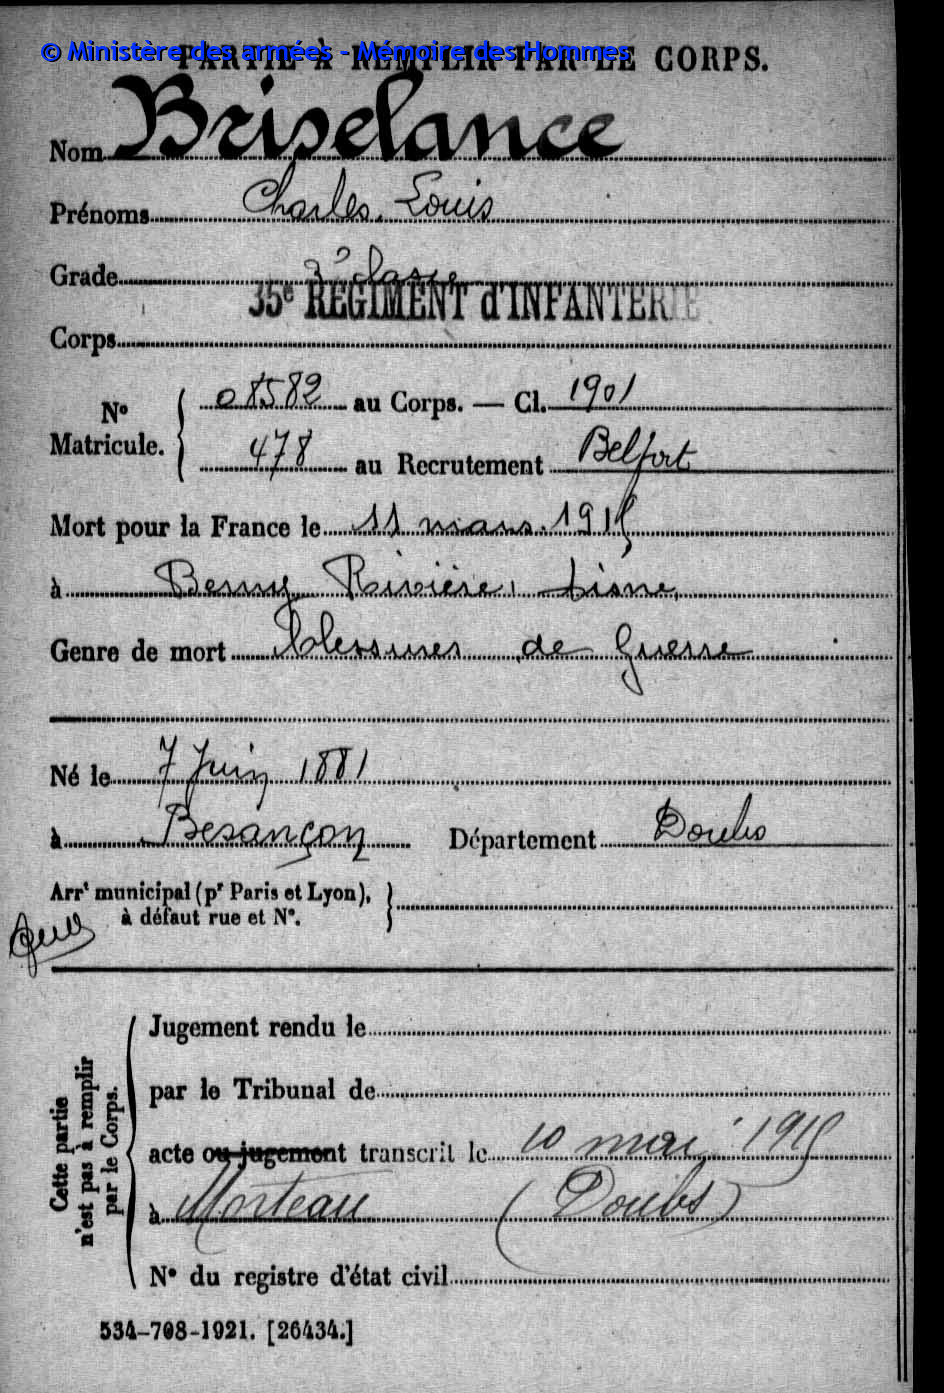 © Ministère des armées - Mémoire des Hommes
PARTIE À REMPLIR PAR LE CORPS.
Nom Briselance
Prénoms Charles, Louis
Grade 2e classe
35e RÉGIMENT d'INFANTERIE
Corps
No Matricule. { 08582 au Corps. — Cl. 1901
478 au Recrutement Belfort
Mort pour la France le 11 mars 1915
à Berny Rivière, Aisne,
Genre de mort blessures de guerre
Né le 7 Juin 1881
à Besançon Département Doubs
Arrt municipal (pr Paris et Lyon),
à défaut rue et No.
Cette partie
n'est pas à remplir
par le Corps.
Jugement rendu le
par le Tribunal de
acte ou jugement transcrit le 10 mai 1915
à Morteau (Doubs)
No du registre d'état civil
534-708-1921. [26434.]